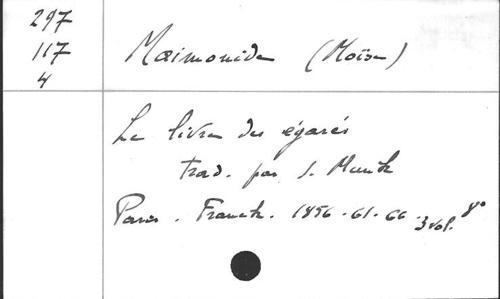 297
117
4
Maimonide (Moïse)
Le livre des égarés
trad. par S. Munk
Paris. Franck. 1856-61-66. 3 vol. 8°